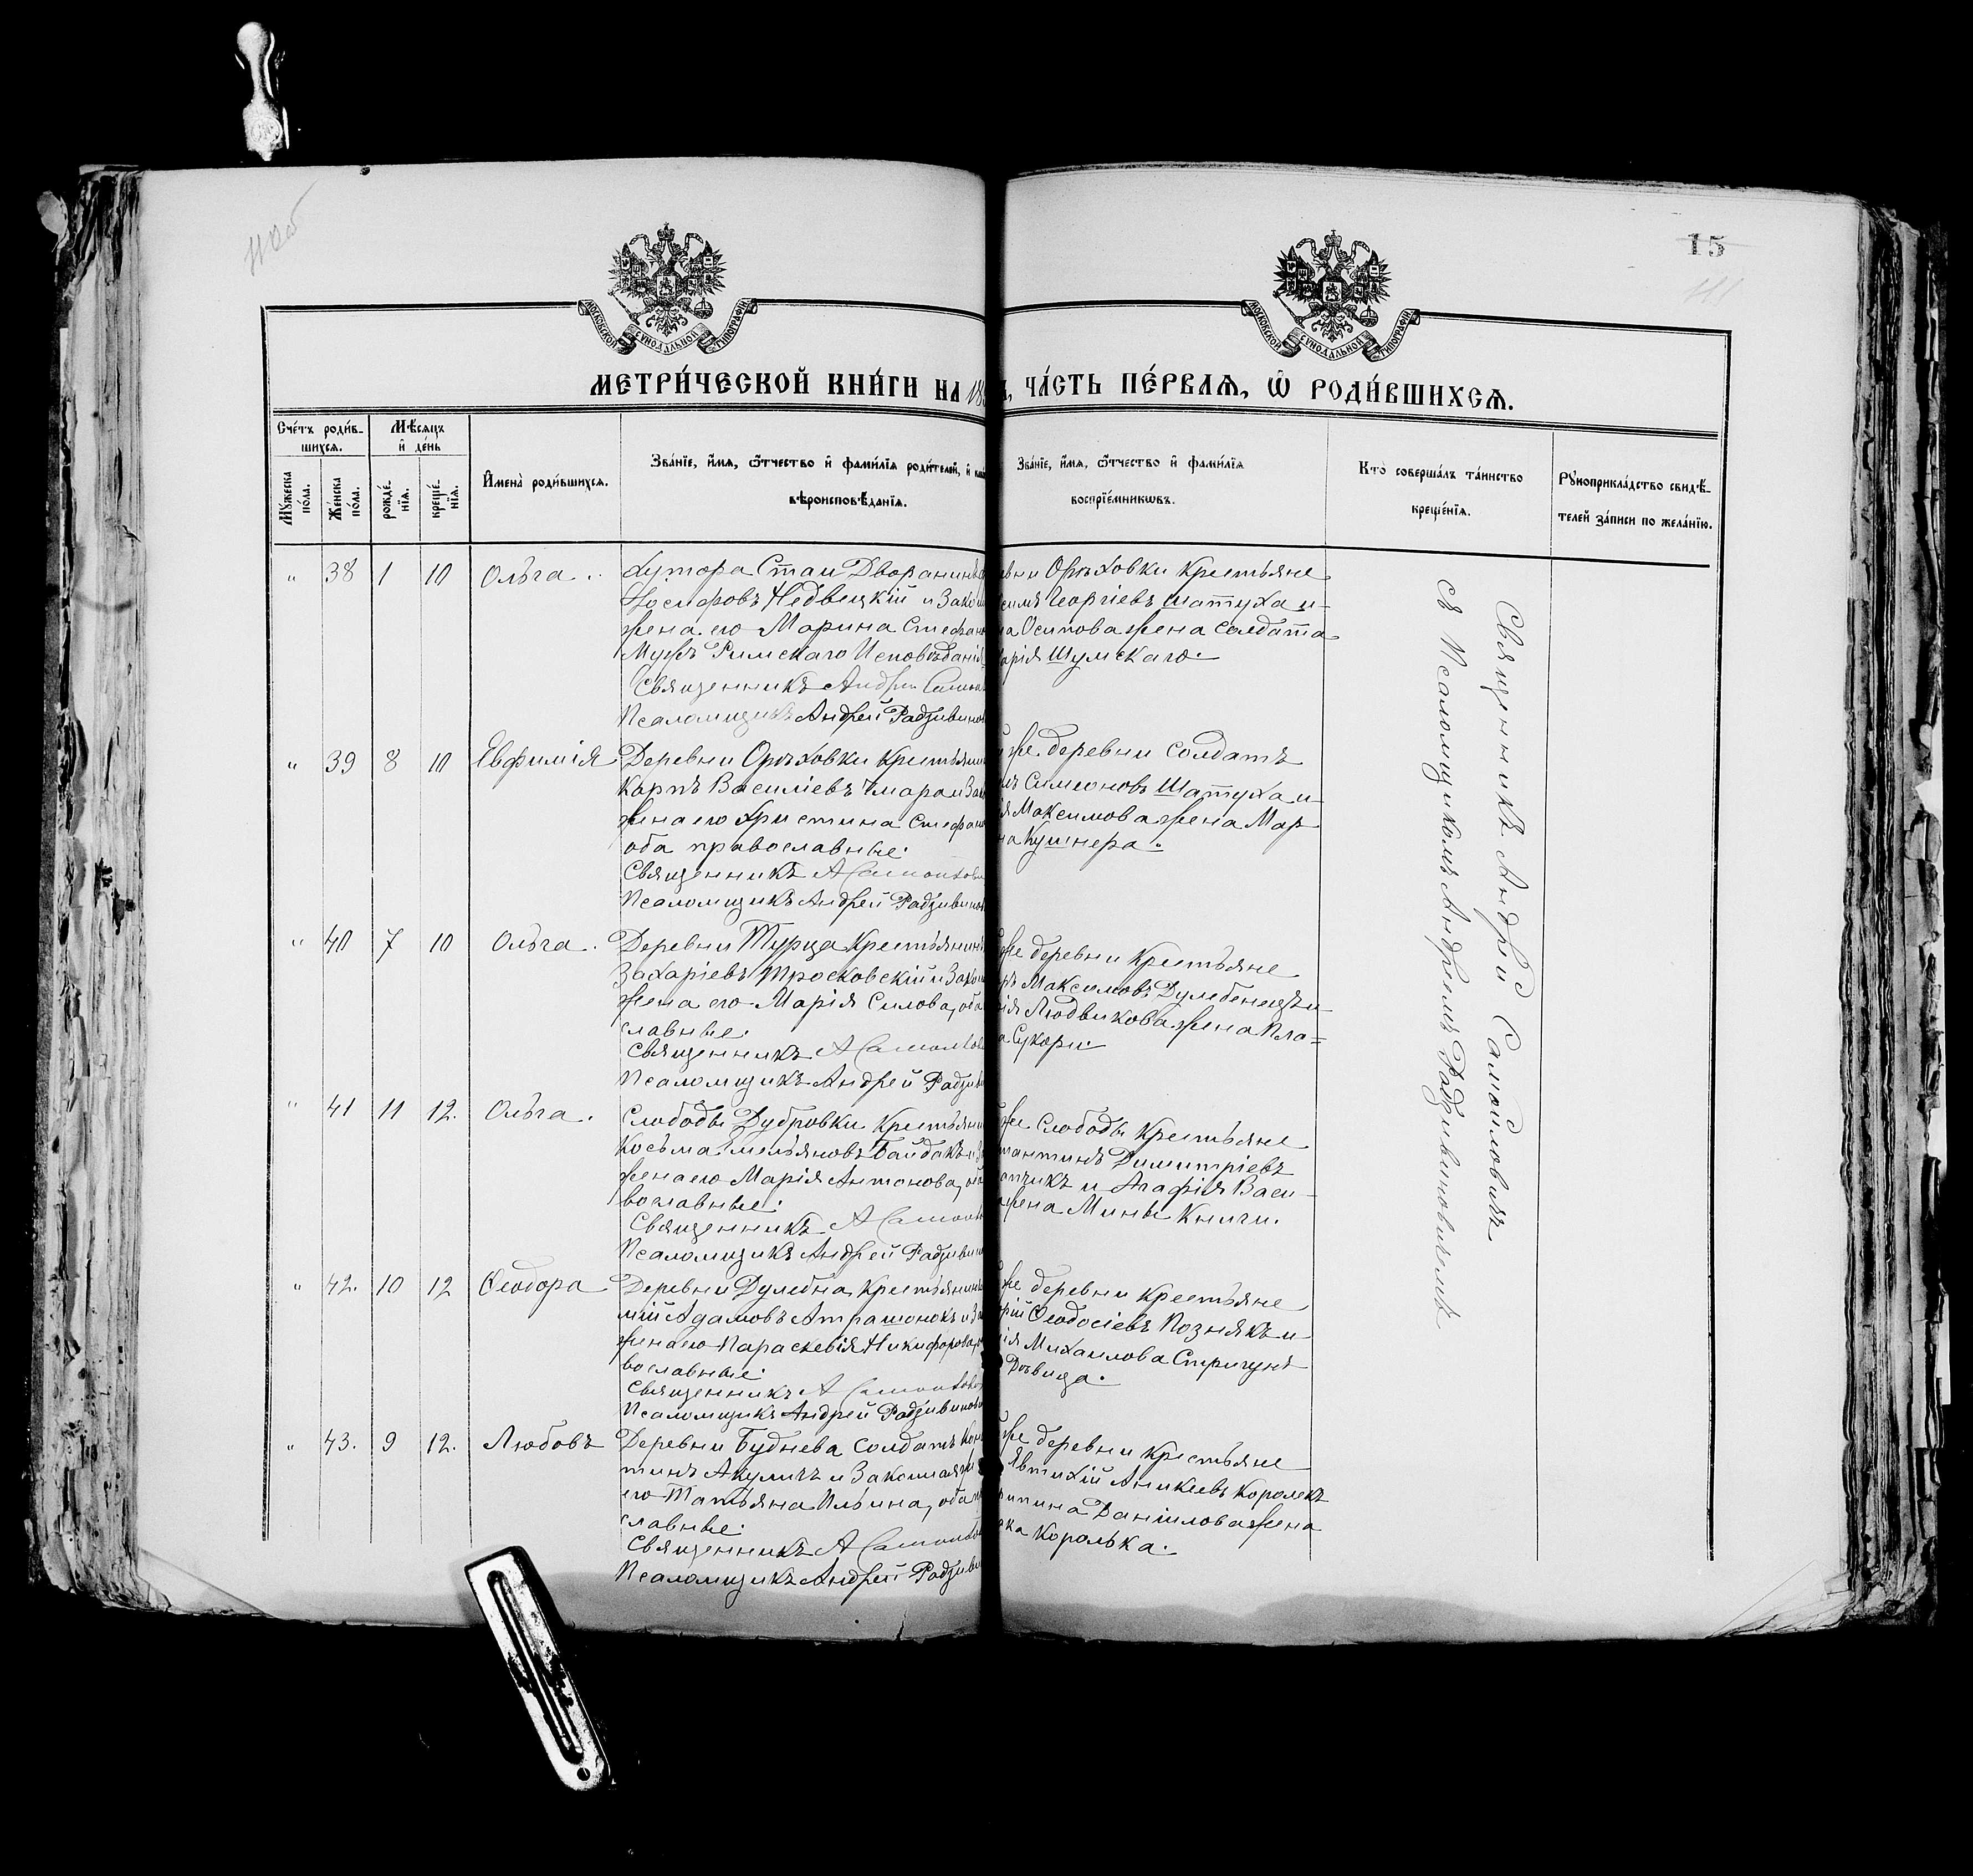 15
МОСКОВСКОЙ СѴНОДАЛЬНОЙ ТИПОГРАФІИ
МОСКОВСКОЙ СѴНОДАЛЬНОЙ ТИПОГРАФІИ
МЕТРИ́ЧЕСКОЙ КНИ́ГИ НА 18
ЧА́СТЬ ПЕ́РВАѦ, Ѡ РОДИ́ВШИХСѦ.
Сче́тъ роди́в-
шихсѧ.
Мꙋжеска по́ла.
Же́нска по́ла.
Мѣсѧцъ
и҆ де́нь
рожде́-
нїѧ.
креще́-
нїѧ.
И҆мена̀ роди́вшихсѧ.
Зва́нїе, и҆́мѧ, ѻ҆́тчество и҆ фами́лїѧ роди́телей, и҆
вѣроисповѣ́данїѧ.
Зва́нїе, и҆́мѧ, ѻ҆́тчество и҆ фами́лїѧ
воспрїе́мникѡвъ.
Кто̀ соверша́лъ та́инство
креще́нїѧ.
Рꙋкоприкла́дство свидѣ́-
телей за́писи по жела́нїю.
" 38 1 10 Ольга.
Хутора Стаи Дворянинъ
Іосифовъ Недвецкій и Закон
жена его Марина Стефан
Мужъ Римскаго Исповѣданія
Священникъ Андрей Самой
Псаломщикъ Андрей Радзивинов
вни Орѣховки Крестьяне
Георгіевъ Шатуха и
на Осипова жена солдата
арія Шумскаго.
" 39 8 10 Евфимія
Деревни Орѣховки Крестьянин
Карпъ Василіевъ Чмара и Зак
жена его Христина Стефан
оба православные.
Священникъ А Самойлови
Псаломщикъ Андрей Радзивинов
же деревни Солдатъ
Симеоновъ Шатуха и
Максимова жена Мар
на Кушнера.
" 40 7 10 Ольга.
Деревни Турца Крестьянинъ
Захаріевъ Тросковскій и Закон
жена его Марія Силова, оба
славные.
Священникъ А Самойлов
Псаломщикъ Андрей Радзиви
же деревни Крестьяне
ръ Максимовъ Дулебенецъ и
ія Людвикова жена Пла=
а Сухори.
" 41 11 12. Ольга.
Слободы Дубровки Крестьянин
Косьма Мельяновъ Байдакъ и
жена его Марія Антонова, об
вославные.
Священникъ А Самойло
Псаломщикъ Андрей Радзивин
же Слободы Крестьяне
тантинъ Димитріевъ
и Агафія Васи-
жена Мины Книги.
" 42. 10 12 Ѳеодора
Деревни Дулебна Крестьянинъ
мій Адамовъ Атрашонокъ и За
жена его Параскевія Никифорова,
вославные.
Священникъ А Самойлов
Псаломщикъ Андрей Радзивинов
же деревни Крестьяне
рій Ѳеодосіевъ Познякъ и
ія Михаилова Стригунъ
Дѣвица.
" 43. 9 12. Любовь
Деревни Буднева Солдатъ Кон
тинъ Акуличъ и Законная же
его Татьяна Ильина, оба п
славные.
Священникъ А Самойлов
Псаломщикъ Андрей Радзиви
же деревни Крестьяне
Явтихій Аникіевъ Королекъ
Даніилова жена
Королька.
Священникъ Андрей Самойловичъ
съ Псаломщикомъ Андреемъ Радзивиновичемъ